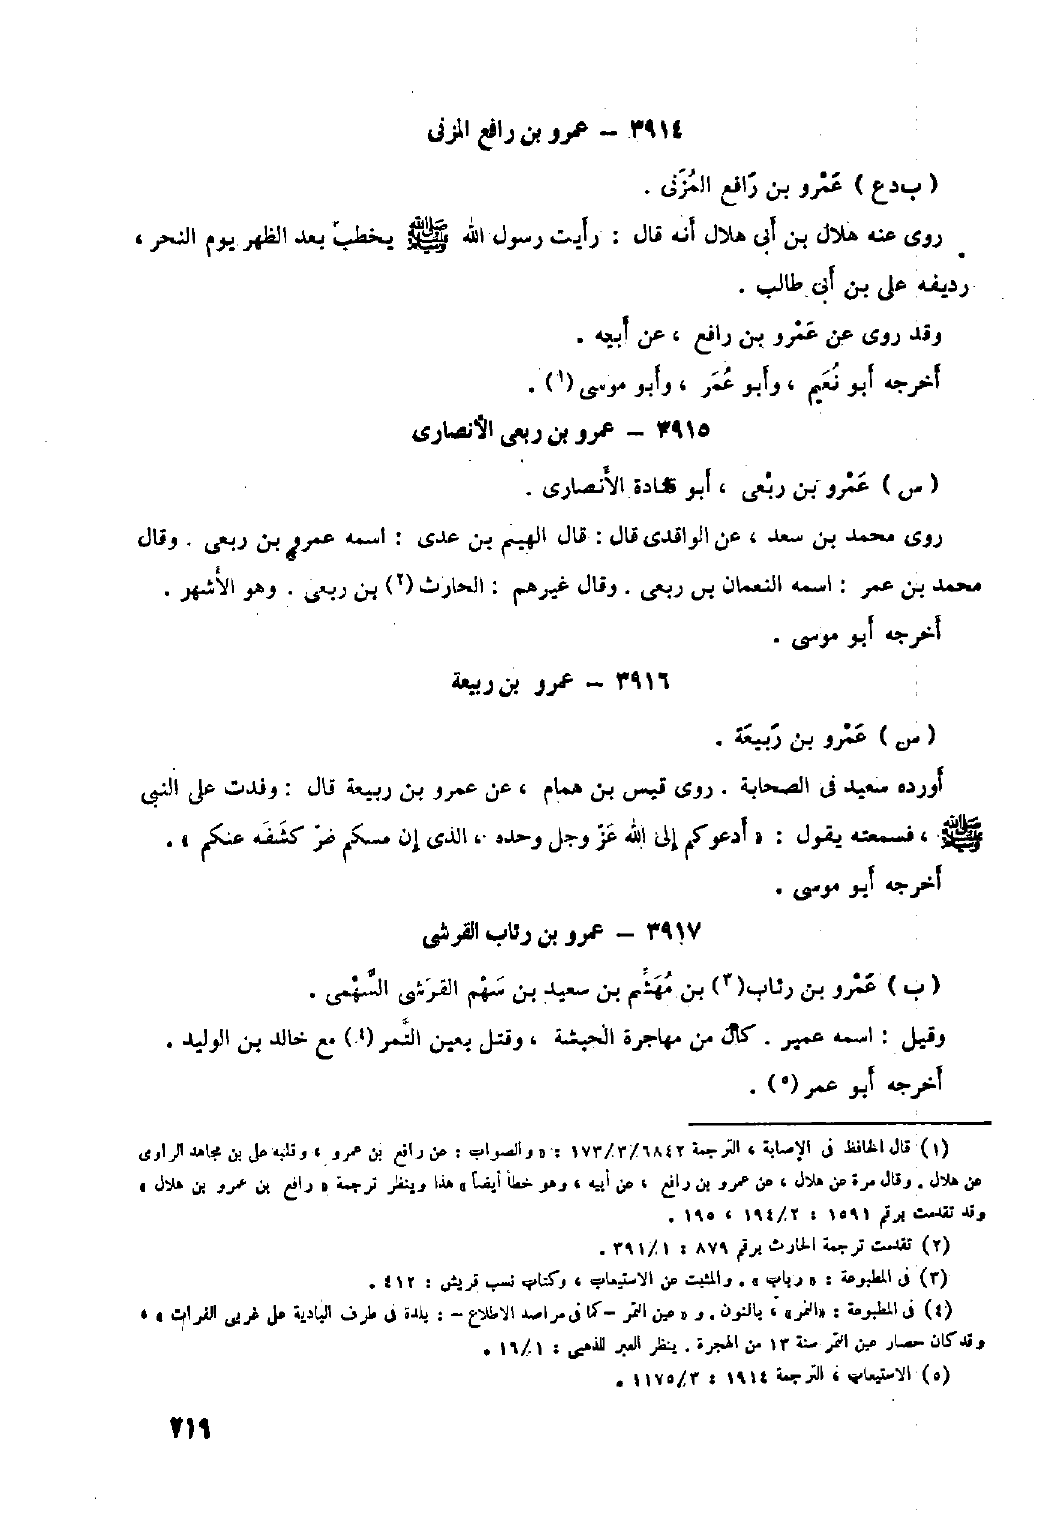 ٣٩١٤ – عمرو بن رافع المزنى
( ب د ع ) عَمْرو بن رَافع المُزَنى .
روى عنه هلال بن أبى هلال أنه قال : رأيت رسول الله ﷺ يخطب بعد الظهر يوم النحر ،
رديفه على بن أبى طالب .
وقد روى عن عَمْرو بن رافع ، عن أبيه .
أخرجه أبو نُعَيم ، وأبو عُمَر ، وأبو موسى (١) .
٣٩١٥ – عمرو بن ربعى الأنصارى
( س ) عَمْرو بن ربْعى ، أبو قتادة الأنصارى .
روى محمد بن سعد ، عن الواقدى قال : قال الهيثم بن عدى : اسمه عمرو بن ربعى . وقال
محمد بن عمر : اسمه النعمان بن ربعى . وقال غيرهم : الحارث (٢) بن ربعى . وهو الأشهر .
أخرجه أبو موسى .
٣٩١٦ – عمرو بن ربيعة
( س ) عَمْرو بن رَبيعَة .
أورده سعيد فى الصحابة . روى قيس بن همام ، عن عمرو بن ربيعة قال : وفدت على النبى
ﷺ ، فسمعته يقول : « أدعوكم إلى الله عَزّ وجل وحده ، الذى إن مسكم ضرّ كشَفَه عنكم » .
أخرجه أبو موسى .
٣٩١٧ – عمرو بن رئاب القرشى
( ب ) عَمْرو بن رئاب (٣) بن مُهَشِّم بن سعيد بن سَهْم القرَشى السَّهْمى .
وقيل : اسمه عمير . كان من مهاجرة الحبشة ، وقتل بعين التَّمر (٤) مع خالد بن الوليد .
أخرجه أبو عمر (٥) .
(١) قال الحافظ فى الإصابة ، الترجمة ٦٨٤٢/٣/١٧٣ : « والصواب : عن رافع بن عمرو ، وقلبه على بن مجاهد الراوى
عن هلال . وقال مرة عن هلال ، عن عمرو بن رافع ، عن أبيه ، وهو خطأ أيضاً » هذا وينظر ترجمة « رافع بن عمرو بن هلال »
وقد تقدمت برقم ١٥٩١ : ١٩٤/٢ ، ١٩٥ .
(٢) تقدمت ترجمة الحارث برقم ٨٧٩ : ٣٩١/١ .
(٣) فى المطبوعة : « رياب » . والمثبت عن الاستيعاب ، وكتاب نسب قريش : ٤١٢ .
(٤) فى المطبوعة : «النمر» ، بالنون . و « عين التمر – كما فى مراصد الاطلاع – : بلدة فى طرف البادية على غربى الفرات » ،
وقد كان حصار عين التمر سنة ١٣ من الهجرة . ينظر العبر للذهبى : ١٦/١ .
(٥) الاستيعاب ، الترجمة ١٩١٤ : ١١٧٥/٣ .
٧١٩